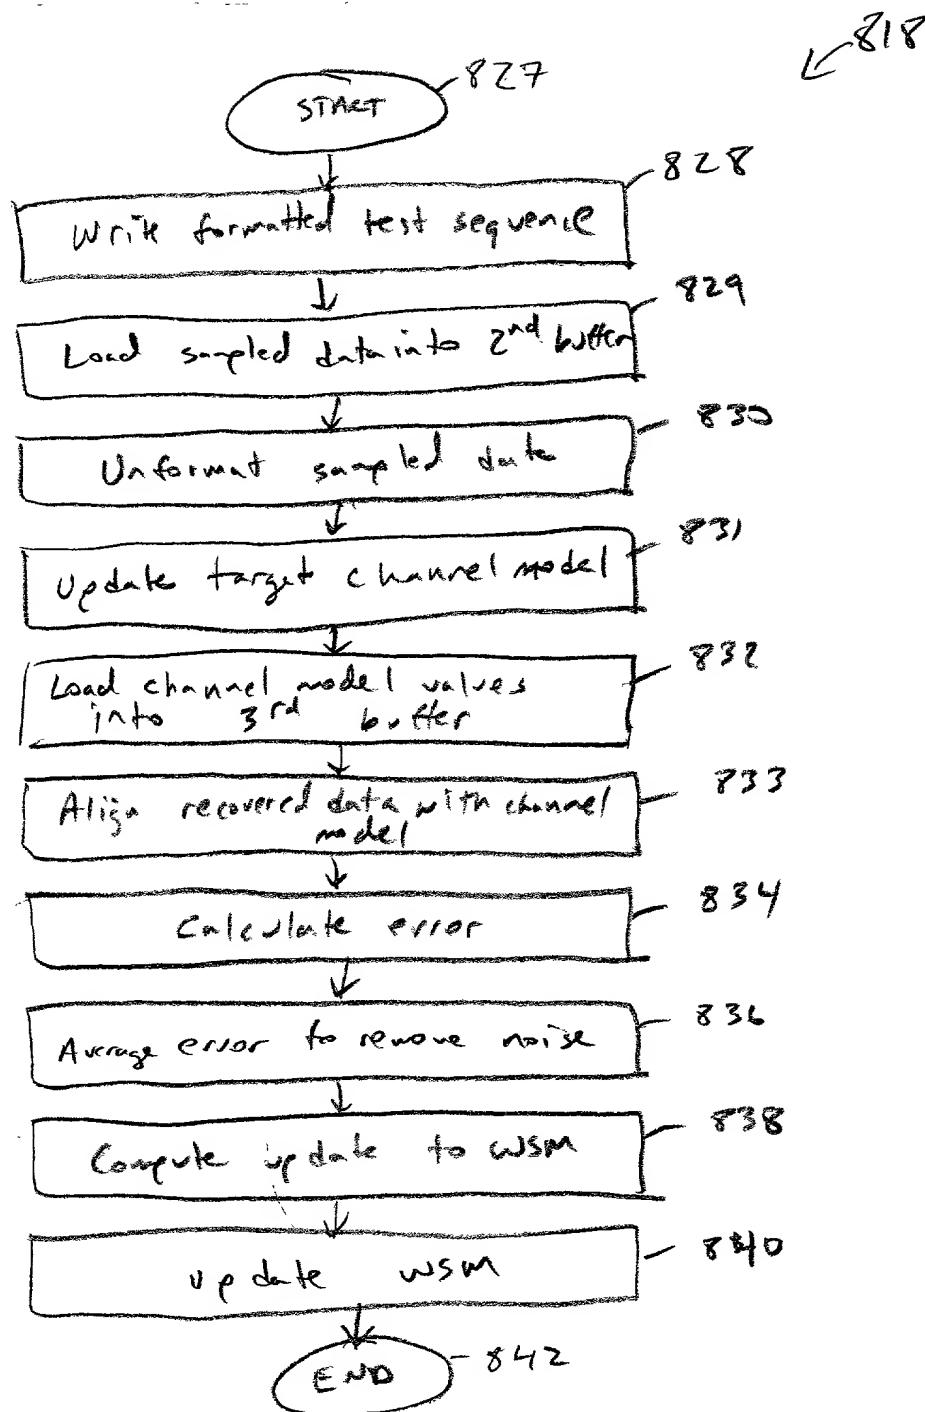 818
827
START
828
Write formatted test sequence
829
Load sampled data into 2nd buffer
830
Unformat sampled data
831
Update target channel model
832
Load channel model values
into 3rd buffer
833
Align recovered data with channel
model
834
Calculate error
836
Average error to remove noise
838
Compute update to WSM
840
update WSM
842
END